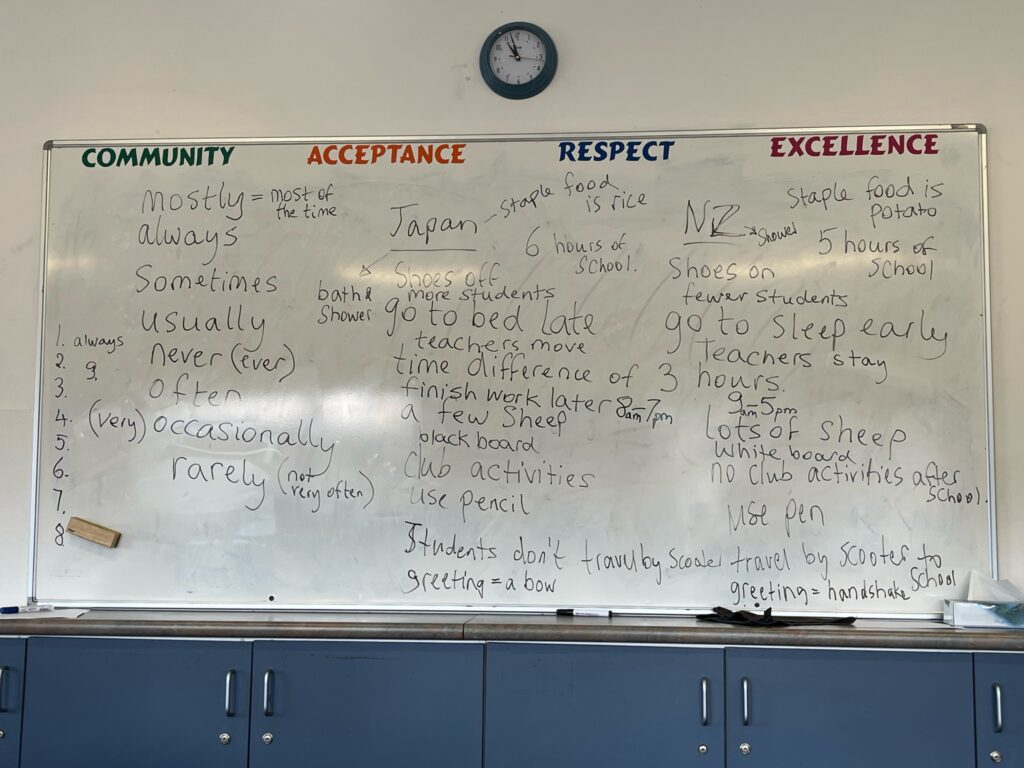 COMMUNITY ACCEPTANCE RESPECT EXCELLENCE
mostly = most of
the time
always
Sometimes
usually
never (ever)
often
(very) occasionally
rarely (not
very often)
1. always
2.
9.
3.
4.
5.
6.
7.
8.
Japan
Staple food
is rice
6 hours of
School.
bath &
Shower
Shoes off
more students
go to bed late
teachers move
time difference of 3 hours.
finish work later 8am-7pm
a few Sheep
black board
club activities
use pencil
Students don't travel by Scooter
greeting = a bow
NZ
Shower
Staple food is
potato
5 hours of
School
Shoes on
fewer students
go to sleep early
Teachers stay
9am-5pm
lots of sheep
white board
no club activities after
School.
use pen
travel by scooter to
School
greeting = handshake